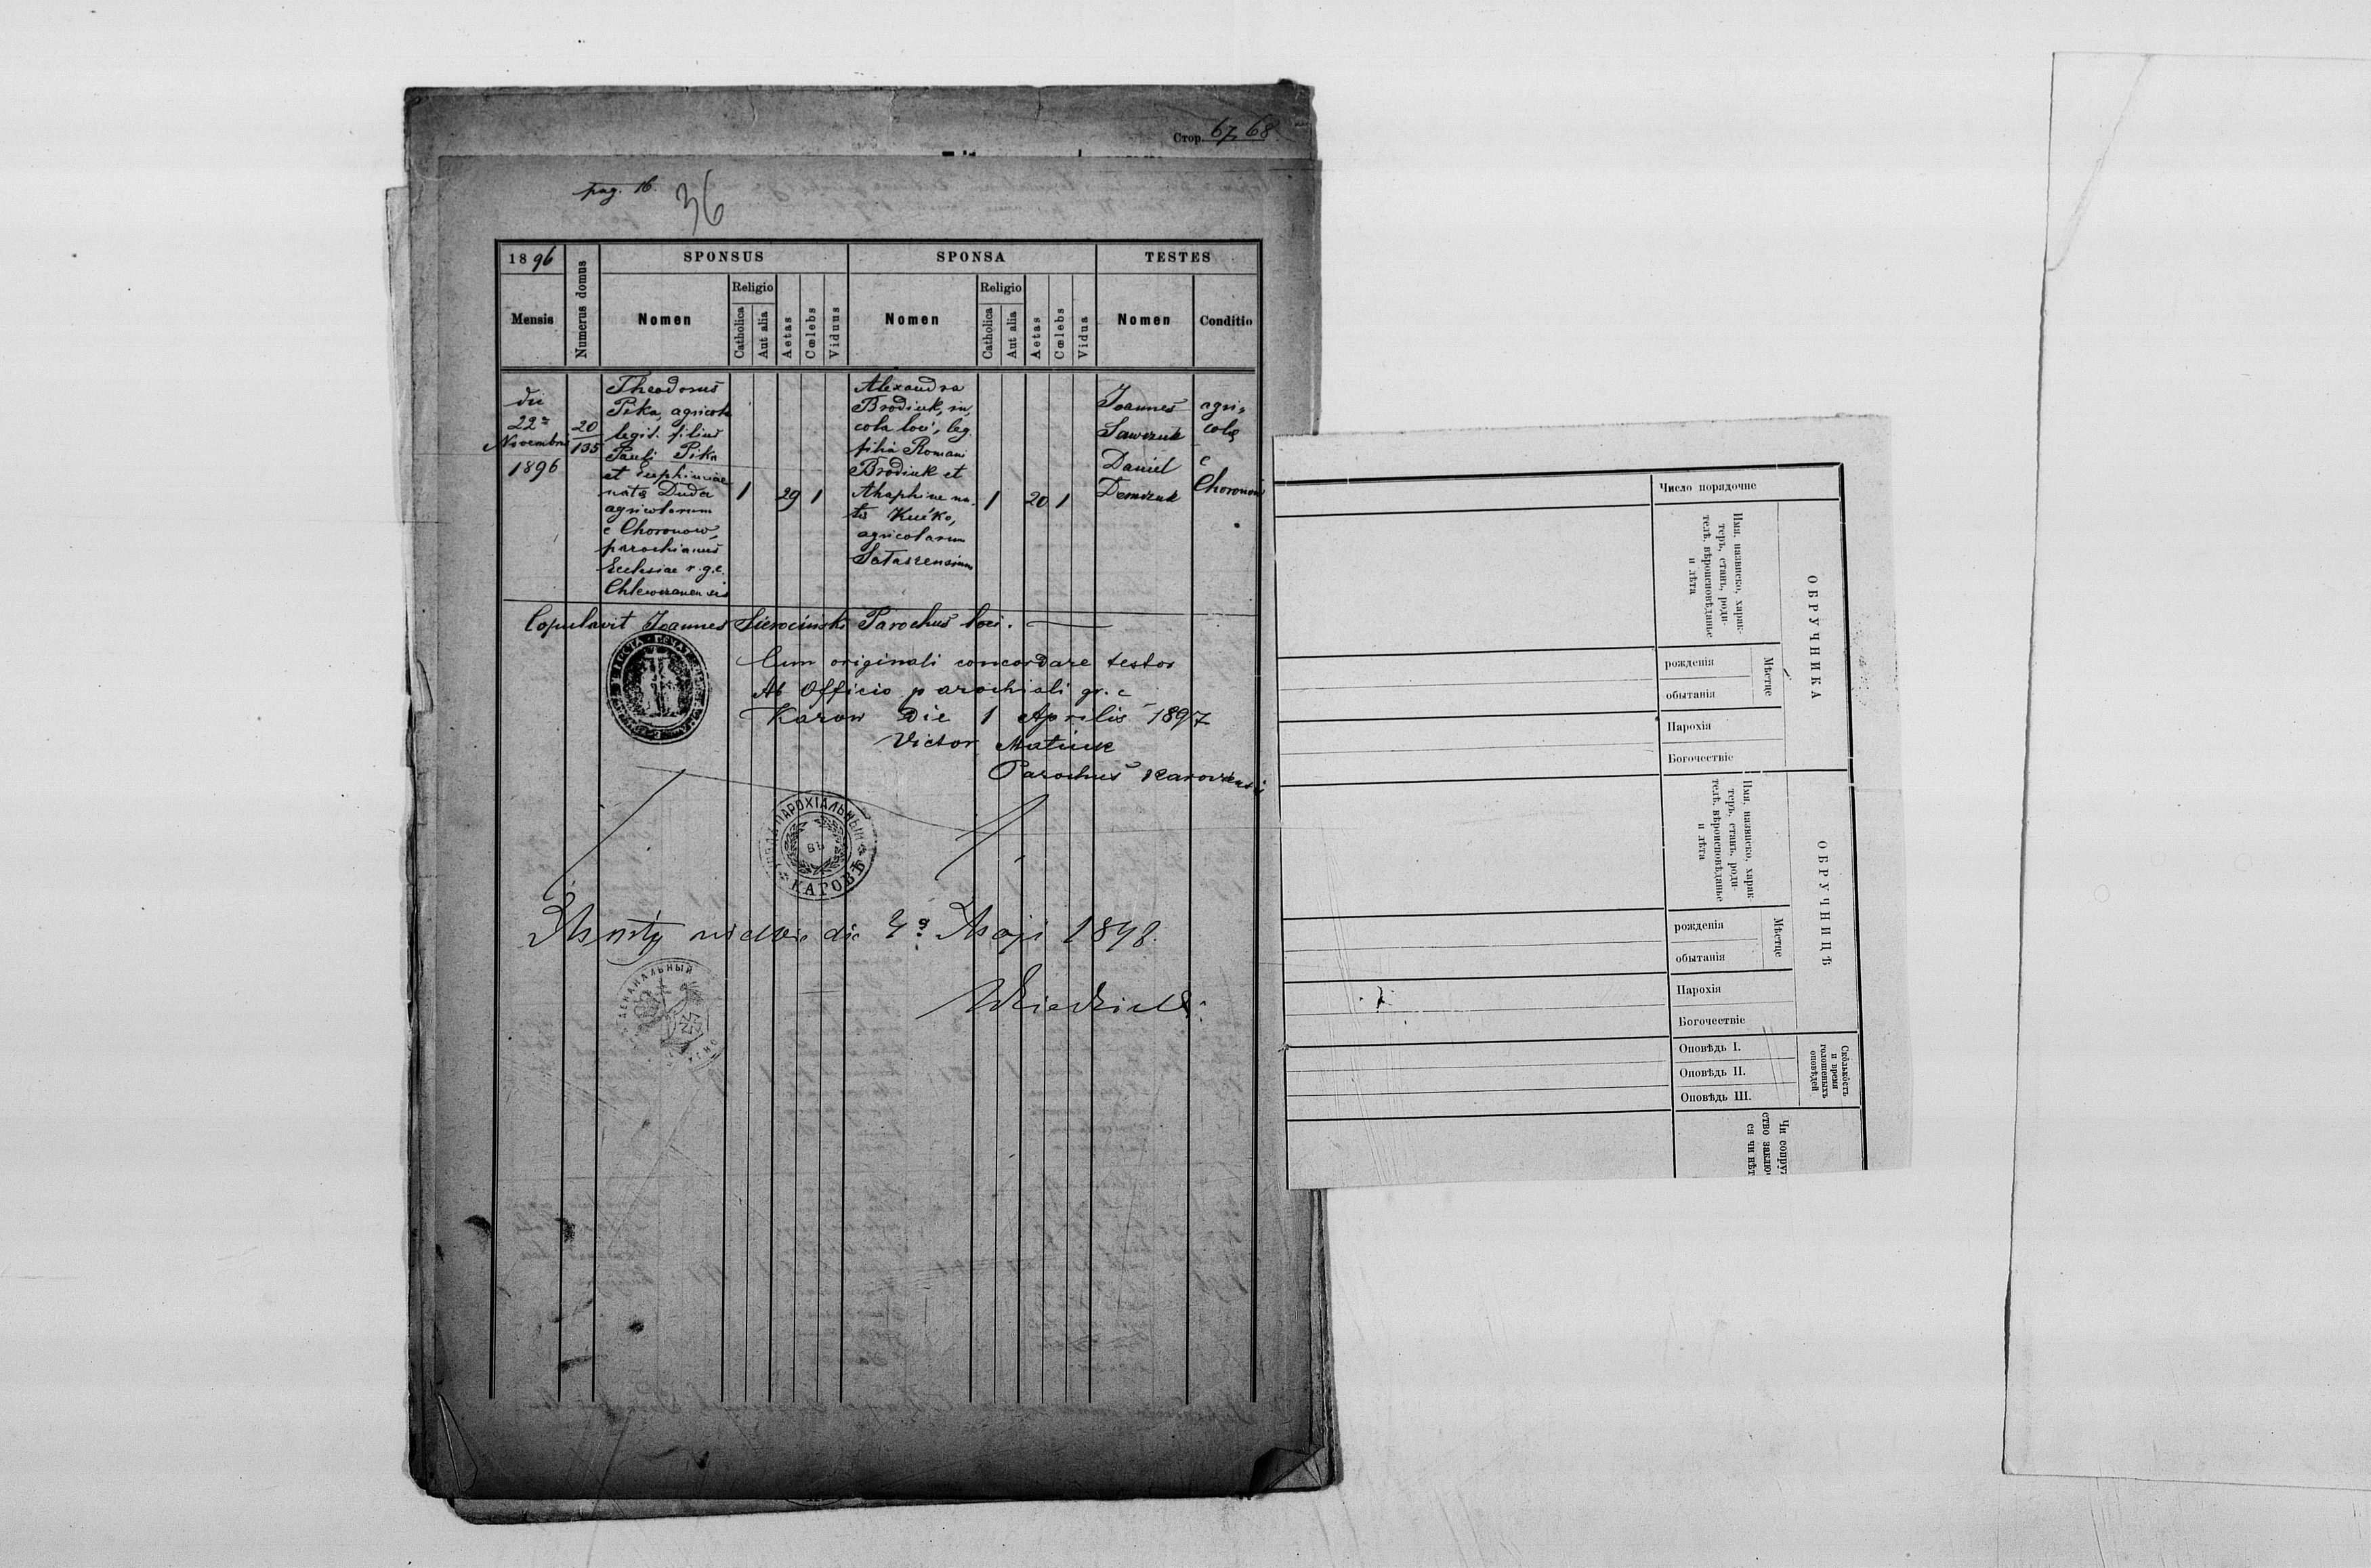 Стор. 67, 68
pag. 16.
36
1896
Mensis
Numerus domus
SPONSUS
Nomen
Religio
Catholica
Aut alia
Aetas
Cœlebs
Viduus
SPONSA
Nomen
Religio
Catholica
Aut alia
Aetas
Cœlebs
Vidua
TESTES
Nomen
Conditio
die
22a
Novembris
1896
20
135
Theodorus
Pika, agricola
legit. filius
Pauli Pika
et Euphimiae
natae Duda
agricolarum
e Choronow,
parochianus
Ecclesiae r. g. c.
1
29
1
Alexandra
Brodiuk, in,
cola loci, leg.
filia Romani
Brodiuk et
Ahaphiae na-
tae Kućko,
agricolarum
1
20
1
Joannes
Sawczuk
Daniel
Demczuk
agri,
colae
e
Choronow
Copulavit Joannes Sierociński Parochus loci.
Cum originali concordare testor
Ab Officio parochiali gr. c
Karow die 1 Aprilis 1897
Victor Matiuk
Parochus Karowensis
ПАРОХІАЛЬНЫЙ
ВЪ
КАРОВѢ
die 4a Maji 1898.
ДЕКАНАЛЬНЫЙ
Число порядочне
ОБРУЧНИКА
Имя, назвиско, харак-
теръ, станъ, роди-
телѣ, вѣроисповѣданье
и лѣта
Мѣстце
рожденія
обытанія
Парохія
Богочествіе
ОБРУЧНИЦѢ
Имя, назвиско, харак-
теръ, станъ, роди-
телѣ, вѣроисповѣданье
и лѣта
Мѣстце
рожденія
обытанія
Парохія
Богочествіе
Сколькостъ
и время
голошеныхъ
оповѣдей
Оповѣдь I.
Оповѣдь II.
Оповѣдь III.
Чи супру
ство заклю
ся чи нѣт